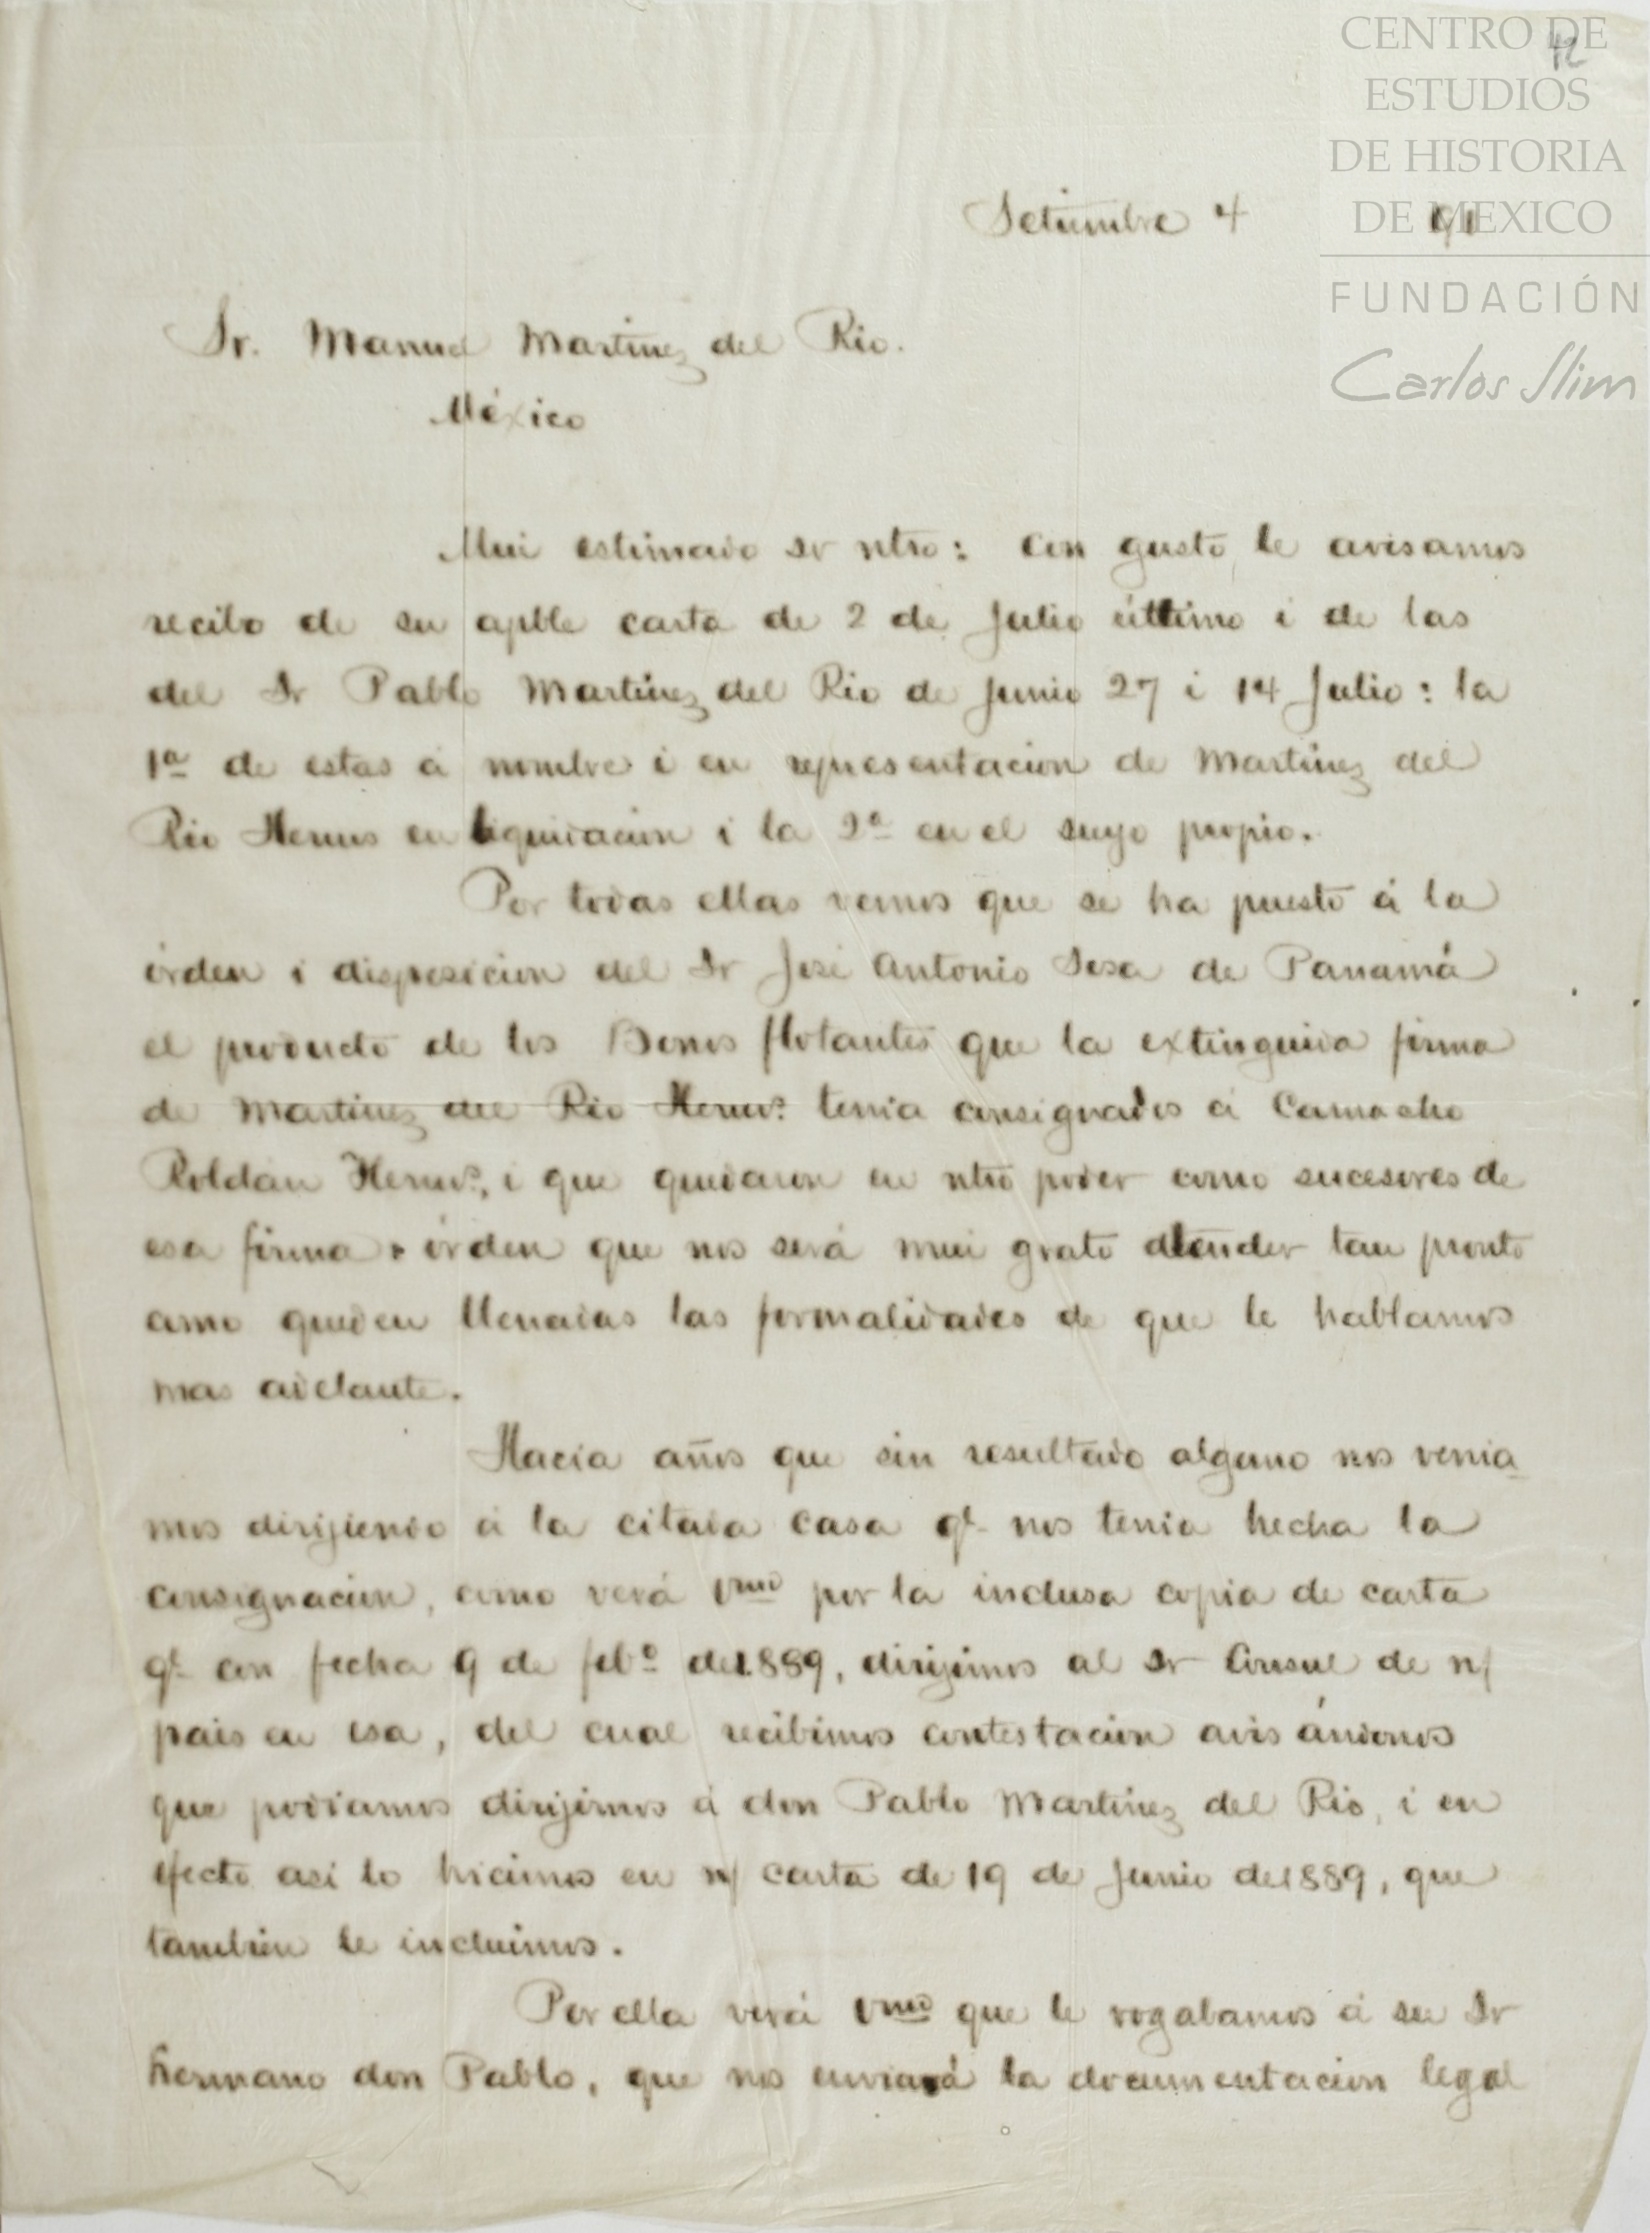 CENTRO DE
ESTUDIOS
DE HISTORIA
DE MEXICO
FUNDACIÓN
Carlos Slim
42
Setiembre 4 91
Sr. Manuel Martinez del Rio.
México
Mui estimado sr ntro: Con gusto le avisamos
recibo de su apble carta de 2 de Julio último i de las
del Sr Pablo Martinez del Rio de Junio 27 i 14 Julio: la
1ª de estas á nombre i en representacion de Martinez del
Rio Hermos en liquidacion i la 2ª en el suyo propio.
Por todas ellas vemos que se ha puesto á la
órden i disposicion del Sr José Antonio Sosa de Panamá
el producto de los Bonos flotantes que la extinguida firma
de Martinez del Rio Hermos. tenia consignados á Camacho
Roldán Hermos., i que quedaron en ntro poder como sucesores de
esa firma: órden que nos será mui grato atender tan pronto
como queden llenadas las formalidades de que le hablamos
mas adelante.
Hacia años que sin resultado alguno nos venia
mos dirijiendo á la citada casa qe nos tenia hecha la
consignacion, como verá Vmd por la inclusa copia de carta
qe con fecha 9 de febo de 1889, dirijimos al Sr Consul de n/
pais en esa, del cual recibimos contestacion avisándonos
que podiamos dirijirnos á don Pablo Martinez del Rio, i en
efecto asi lo hicimos en n/ carta de 19 de Junio de 1889, que
tambien le incluimos.
Por ella verá Vmd que le rogabamos á su Sr
hermano don Pablo, que nos enviará la documentacion legal